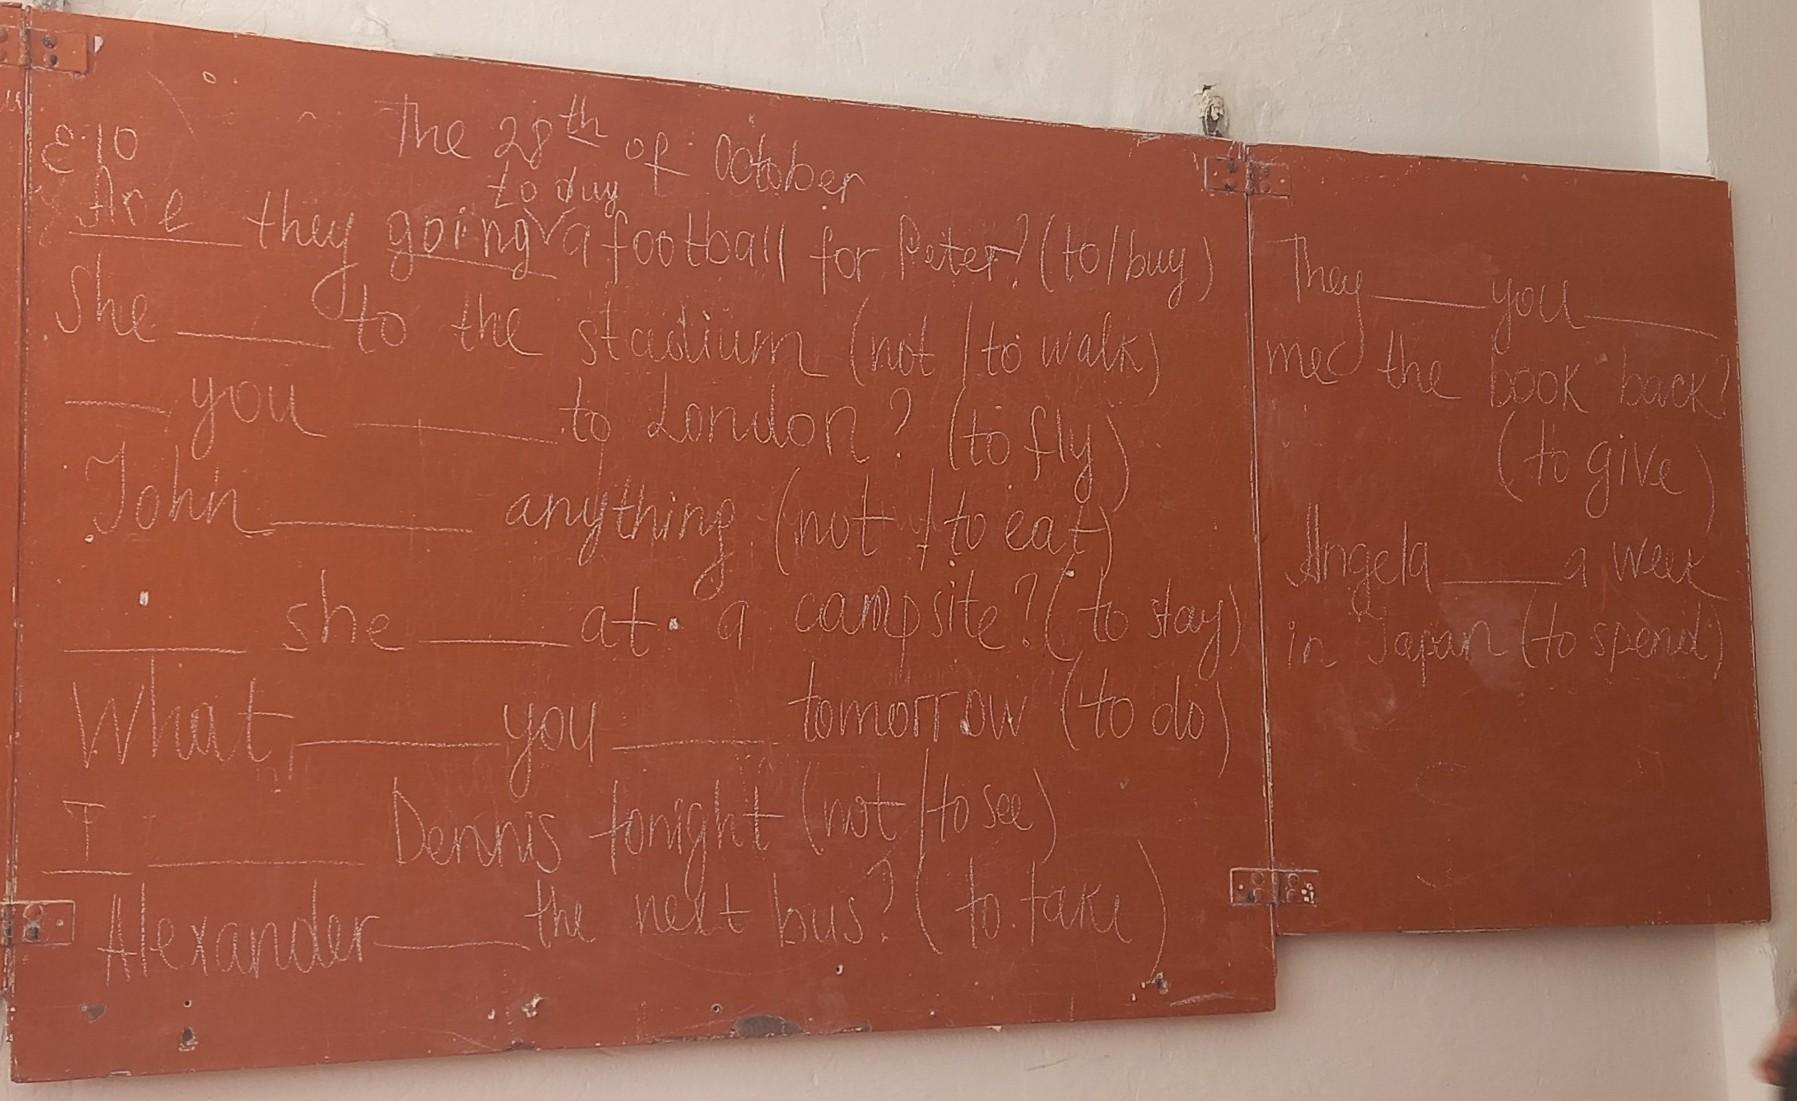 E.10
The 28th of October
to duy
Are they going a football for Peter? (to/buy)
She ____ to the stadium (not / to walk)
____ you ____ to London? (to fly)
John ____ anything (not / to eat)
____ she ____ at a campsite? (to stay)
What ____ you ____ tomorrow (to do)
I ____ Dennis tonight (not / to see)
Alexander ____ the next bus? (to take)
They ____ you ____
me the book back?
(to give)
Angela ____ a week
in Japan (to spend)